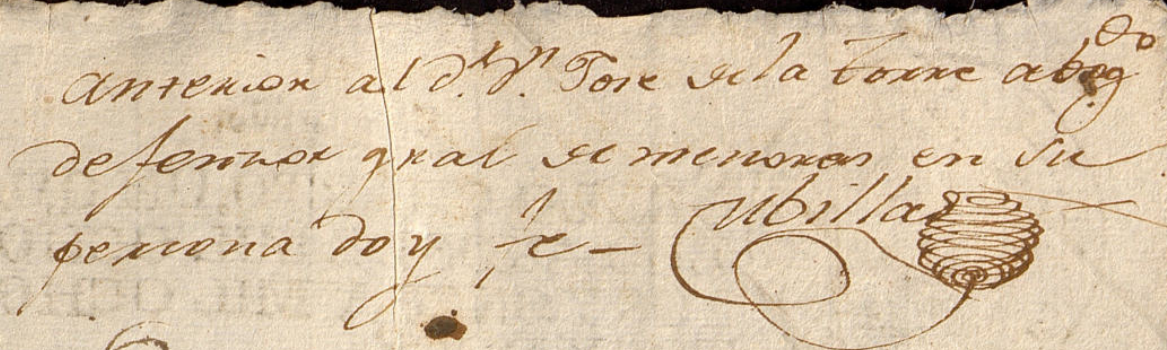 anterior al d.r d.n Jose de la torre abogdo
defensor gral de menores en su
persona doy fe –
Ubillas